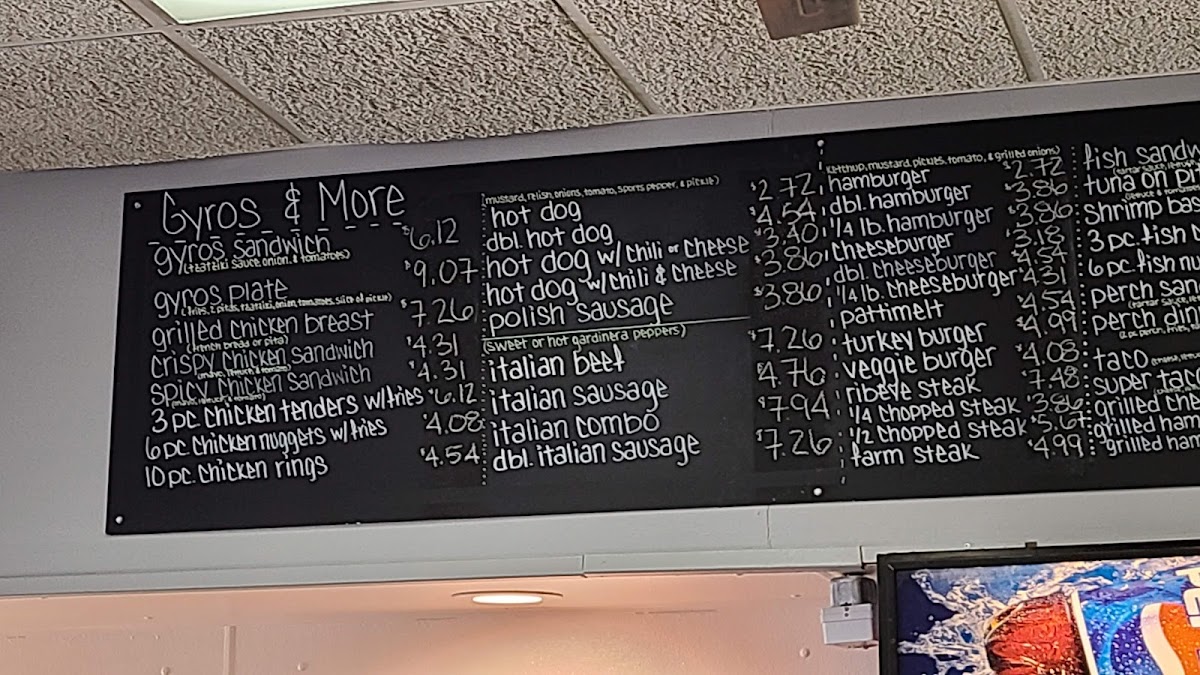 Gyros & More
gyros sandwich $6.12
(tzatziki sauce, onion, & tomatoes)
gyros plate $9.07
(fries, 2 pitas, tzatziki, onion, tomatoes, slice of pickle)
grilled chicken breast $7.26
(french bread or pita)
crispy chicken sandwich $4.31
(mayo, lettuce, & tomato)
spicy chicken sandwich $4.31
(mayo, lettuce, & tomato)
3 pc chicken tenders w/fries $6.12
6 pc. chicken nuggets w/fries $4.08
10 pc. chicken rings $4.54
(mustard, relish, onions, tomato, sports pepper, & pickle)
hot dog $2.72
dbl. hot dog $4.54
hot dog w/ Chili or Cheese $3.40
hot dog w/ Chili & Cheese $3.86
polish sausage $3.86
(sweet or hot gardinera peppers)
italian beef $7.26
italian sausage $4.76
italian combo $7.94
dbl. italian sausage $7.26
(ketchup, mustard, pickles, tomato, & grilled onions)
hamburger $2.72
dbl. hamburger $3.86
1/4 lb. hamburger $3.86
Cheeseburger $3.18
dbl. cheeseburger $4.54
1/4 lb. cheeseburger $4.31
pattimelt $4.54
turkey burger $4.99
veggie burger $4.08
ribeye steak $7.48
1/4 chopped steak $3.86
1/2 chopped steak $5.67
farm steak $4.99
fish sandw
tuna on pit
shrimp bas
3 pc. fish
6 pc. fish nu
perch san
perch din
taco
super taco
grilled che
grilled ham
grilled ham